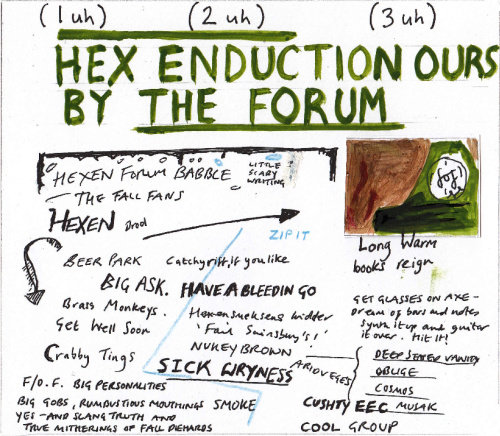 (1 uh) (2 uh) (3 uh)
HEX ENDUCTION OURS
BY THE FORUM
HEXEN FORUM BABBLE
THE FALL FANS
LITTLE
SCARY
WRITING
HEXEN Drool
ZIP IT
BEER PARK Catchyriff, if you like
BIG ASK. HAVE A BLEEDIN GO
Brass Monkeys.
Get Well Soon
Crabby Tings
Hexensucksens bidder
'Fair Sainsbury's!'
NUKEY BROWN
SICK WRYNESS
F/O.F. BIG PERSONALITIES
BIG GOBS, RUMBUSTIOUS MOUTHINGS SMOKE
YES - AND SLANG TRUTH AND
TRUE MITHERINGS OF FALL DEHARDS
Long Warm
books reign
GET GLASSES ON AXE -
Dream of bars and notes
Synth it up and guitar
it over. Hit it!
DEEP STATER VANITY
OBLIGE
COSMOS
CUSHTY EEC MUSAK
COOL GROUP